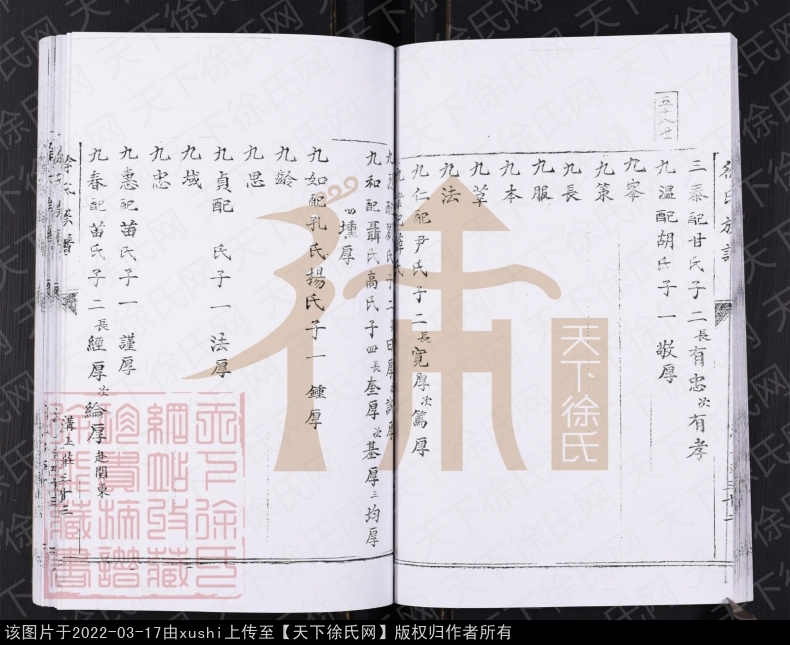 徐氏族譜
五十八世
三泰配甘氏子二長有忠次有孝
九温配胡氏子一敬厚
九寧
九策
九長
九服
九本
九草
九法
九仁配尹氏子二長寛厚次篤厚
九和配聶氏高氏子四長奎厚次基厚三均厚四壎厚
九如配孔氏揚氏子一鍾厚
九齡
九思
九貞配 氏子一法厚
九域
九忠
九惠配苗氏子一謹厚
九春配苗氏子二長經厚次綸厚赴関東
徐氏族譜
天下徐氏
天下徐氏網站收藏珍貴捐譜徐雁藏書
天下徐氏网
该图片于2022-03-17由xushi上传至【天下徐氏网】版权归作者所有